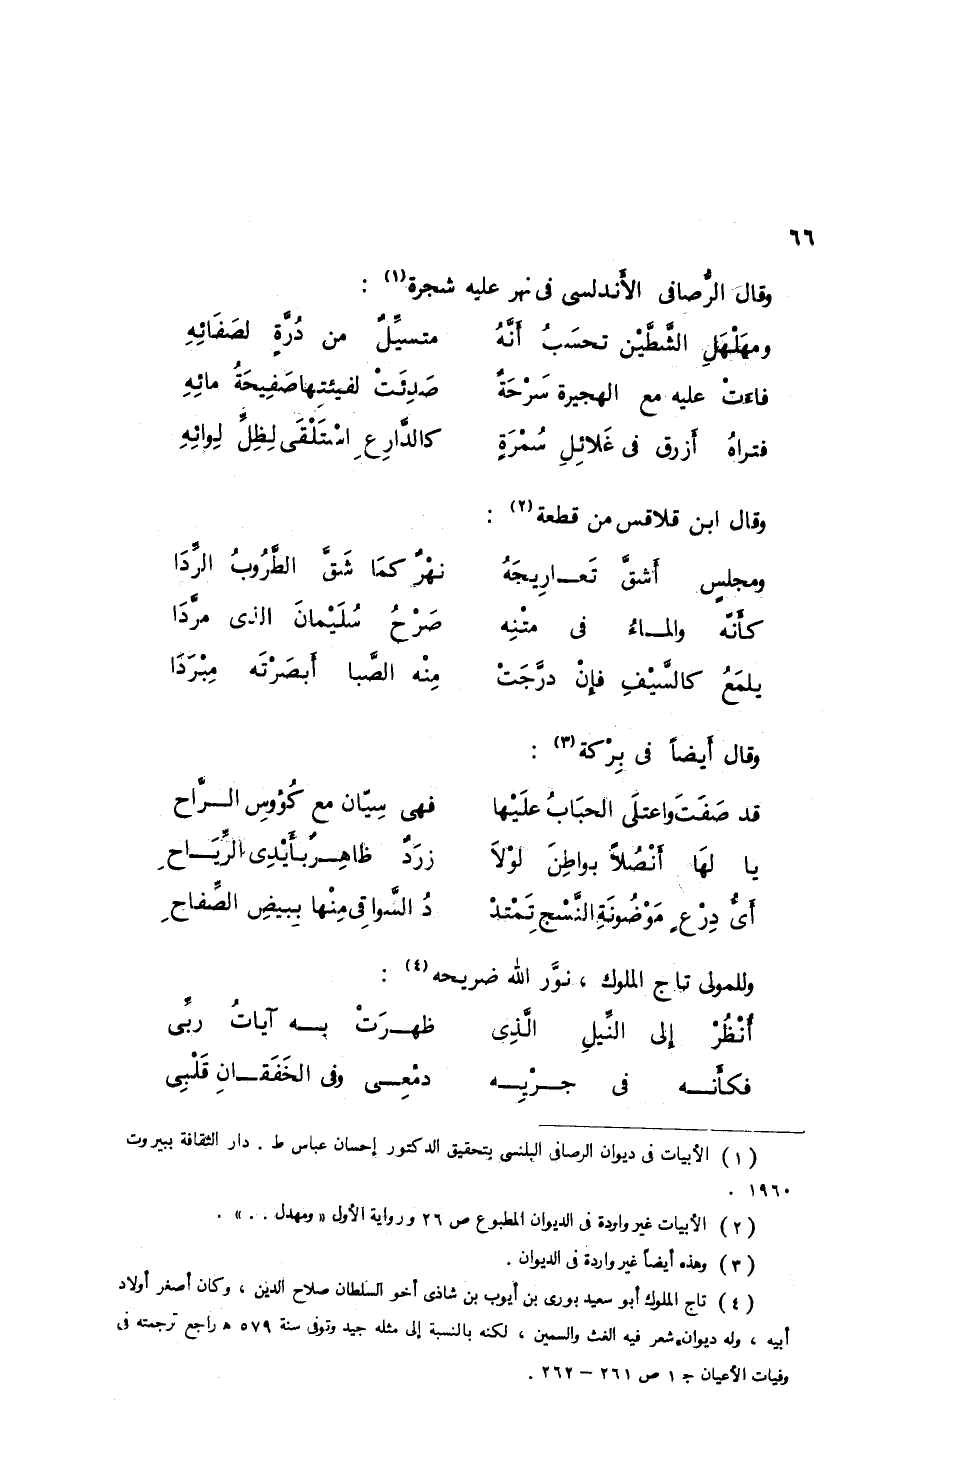 ٦٦
وقال الرُّصافى الأندلسى فى نهر عليه شجرة(١) :
ومهَلْهَلِ الشَّطَّيْن تحسَبُ أنَّهُ متسيِّلٌ من دُرَّةٍ لصَفَائِهِ
فاءتْ عليه مع الهجيرة سَرْحَةٌ صَدِئَتْ لفيئتِها صَفِيحَةُ مائِهِ
فتراهُ أزرق فى غَلائِلِ سُمْرَةٍ كالدَّارِعِ اسْتَلْقَى لِظِلِّ لِوائِهِ
وقال ابن قلاقس من قطعة(٢) :
ومجلسٍ أشقَّ تَعـاريجَهُ نهْرٌ كمَا شَقَّ الطَّرُوبُ الرِّدَا
كأنّه والمـاءُ فى متْنِه صَرْحُ سُلَيْمانَ الذى مرَّدَا
يلمَعُ كالسَّيْفِ فإنْ درَّجَتْ مِنْه الصَّبا أبصَرْتَه مِبْرَدَا
وقال أيضاً فى بِرْكة(٣) :
قد صَفَتَ واعتلَى الحبَابُ علَيْها فهى سِيّان مع كُؤوسِ الـرَّاح
يا لهَا أنْصُلاً بواطِنَ لوْلاَ زرَدٌ ظاهِـرٌ بأَيْدِى الرِّيَـاح
أىُّ دِرْعٍ مَوْضُونَةِ النَّسْجِ تَمْتدْ دُ السَّواقى مِنْها ببيضِ الصِّفاح
وللمولى تاج الملوك ، نوَّر الله ضريحه(٤) :
أنْظُرْ إلى النِّيلِ الَّذِى ظهـرَتْ بـه آياتُ ربِّى
فكأنـه فى جـرْيِـه دمْعِـى وفى الخَفَقـانِ قَلْبِى
(١) الأبيات فى ديوان الرصافى البلنسى بتحقيق الدكتور إحسان عباس ط . دار الثقافة ببيروت
١٩٦٠ .
(٢) الأبيات غير واردة فى الديوان المطبوع ص ٢٦ ورواية الأول « ومهدل . . » .
(٣) وهذه أيضاً غير واردة فى الديوان .
(٤) تاج الملوك أبو سعيد بورى بن أيوب بن شاذى أخو السلطان صلاح الدين ، وكان أصغر أولاد
أبيه ، وله ديوان شعر فيه الغث والسمين ، لكنه بالنسبة إلى مثله جيد وتوفى سنة ٥٧٩ ه راجع ترجمته فى
وفيات الأعيان ج ١ ص ٢٦١ – ٢٦٢ .